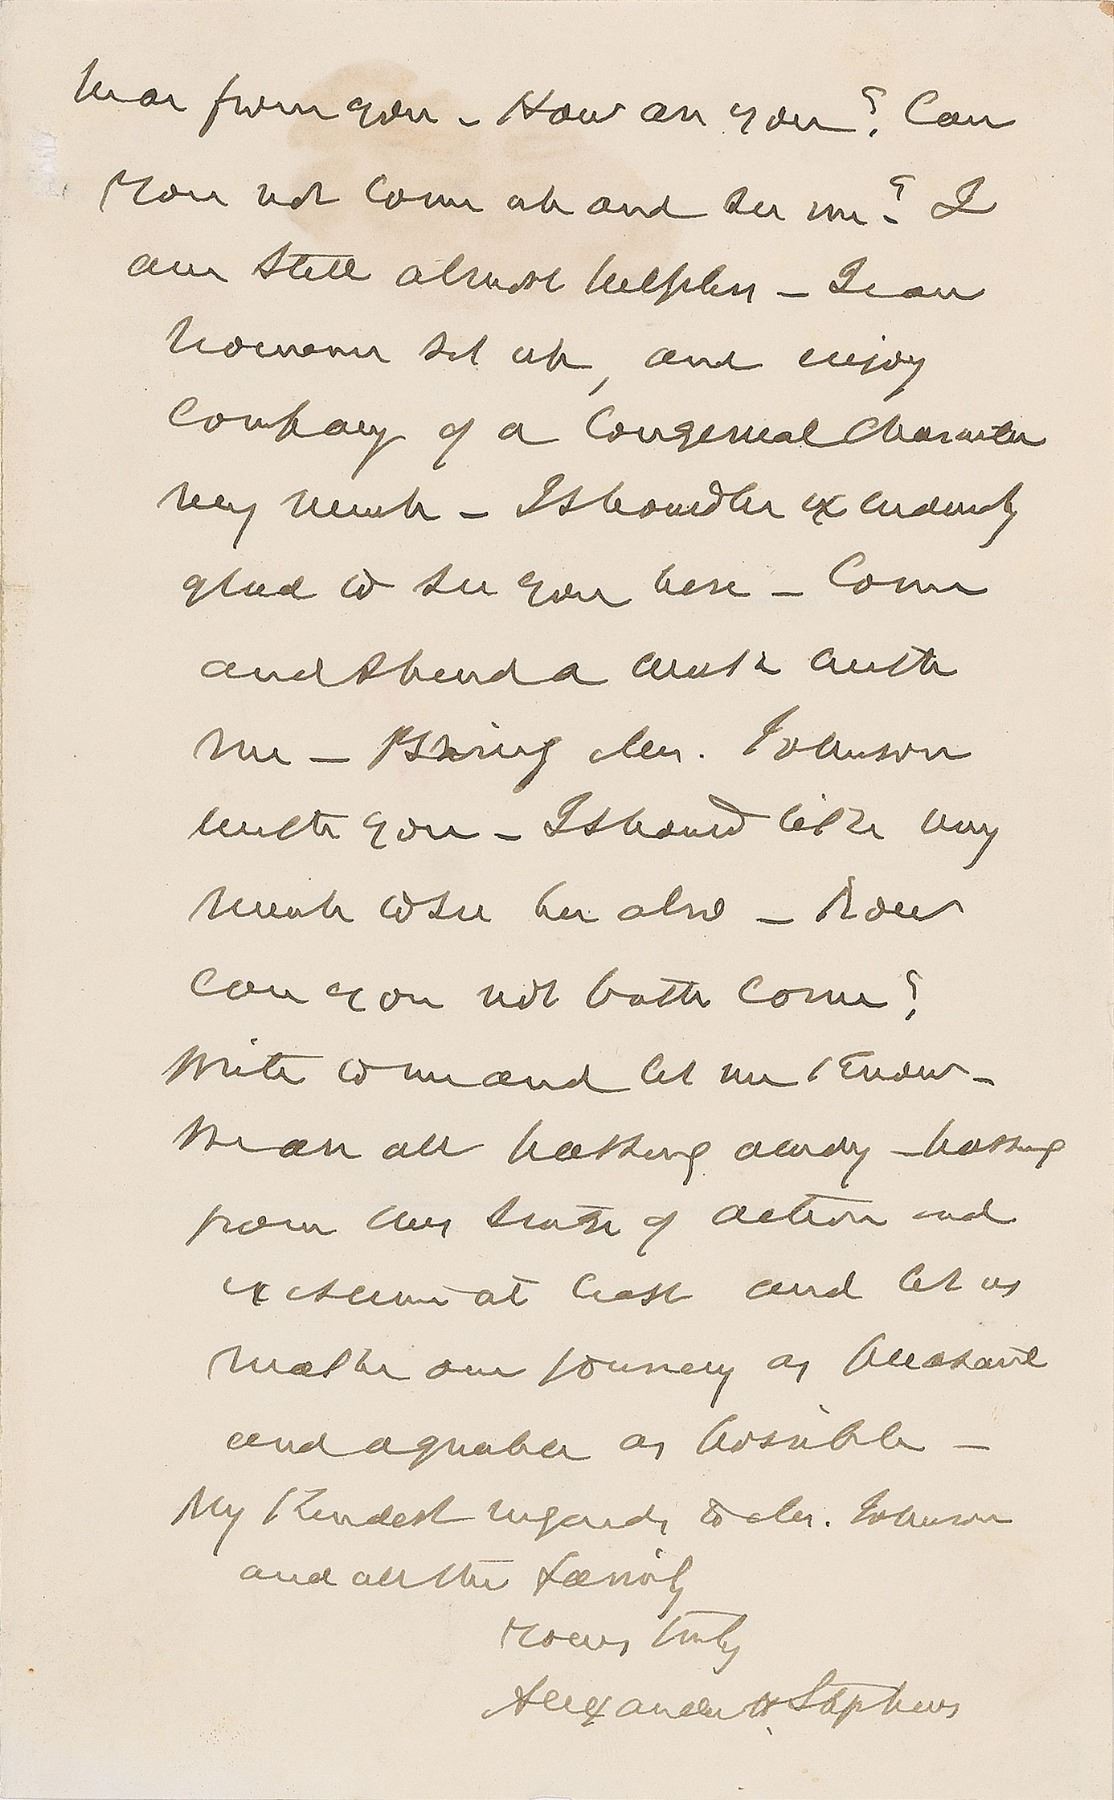 hear from you - How are you? Can
you not come up and see me? I
am still almost helpless - I can
however sit up, and enjoy
company of a congenial character
very much - I should be exceedingly
glad to see you here - Come
and spend a week with
me - Bring Mr. Johnson
with you - I should like very
much to see her also - Now
can you not both come?
Write to me and let me know -
We are all passing away - passing
from this state of action and
existence at least and let us
make our journey as pleasant
and agreeable as possible -
My kindest regards to Mr. Johnson
and all the family
Yours truly
Alexander H. Stephens